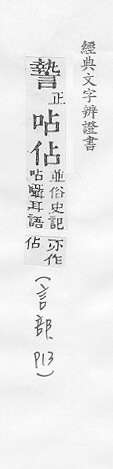 經典文字辨證書
謺正呫佔並俗史記呫囁耳語亦作佔
(言部 P13)